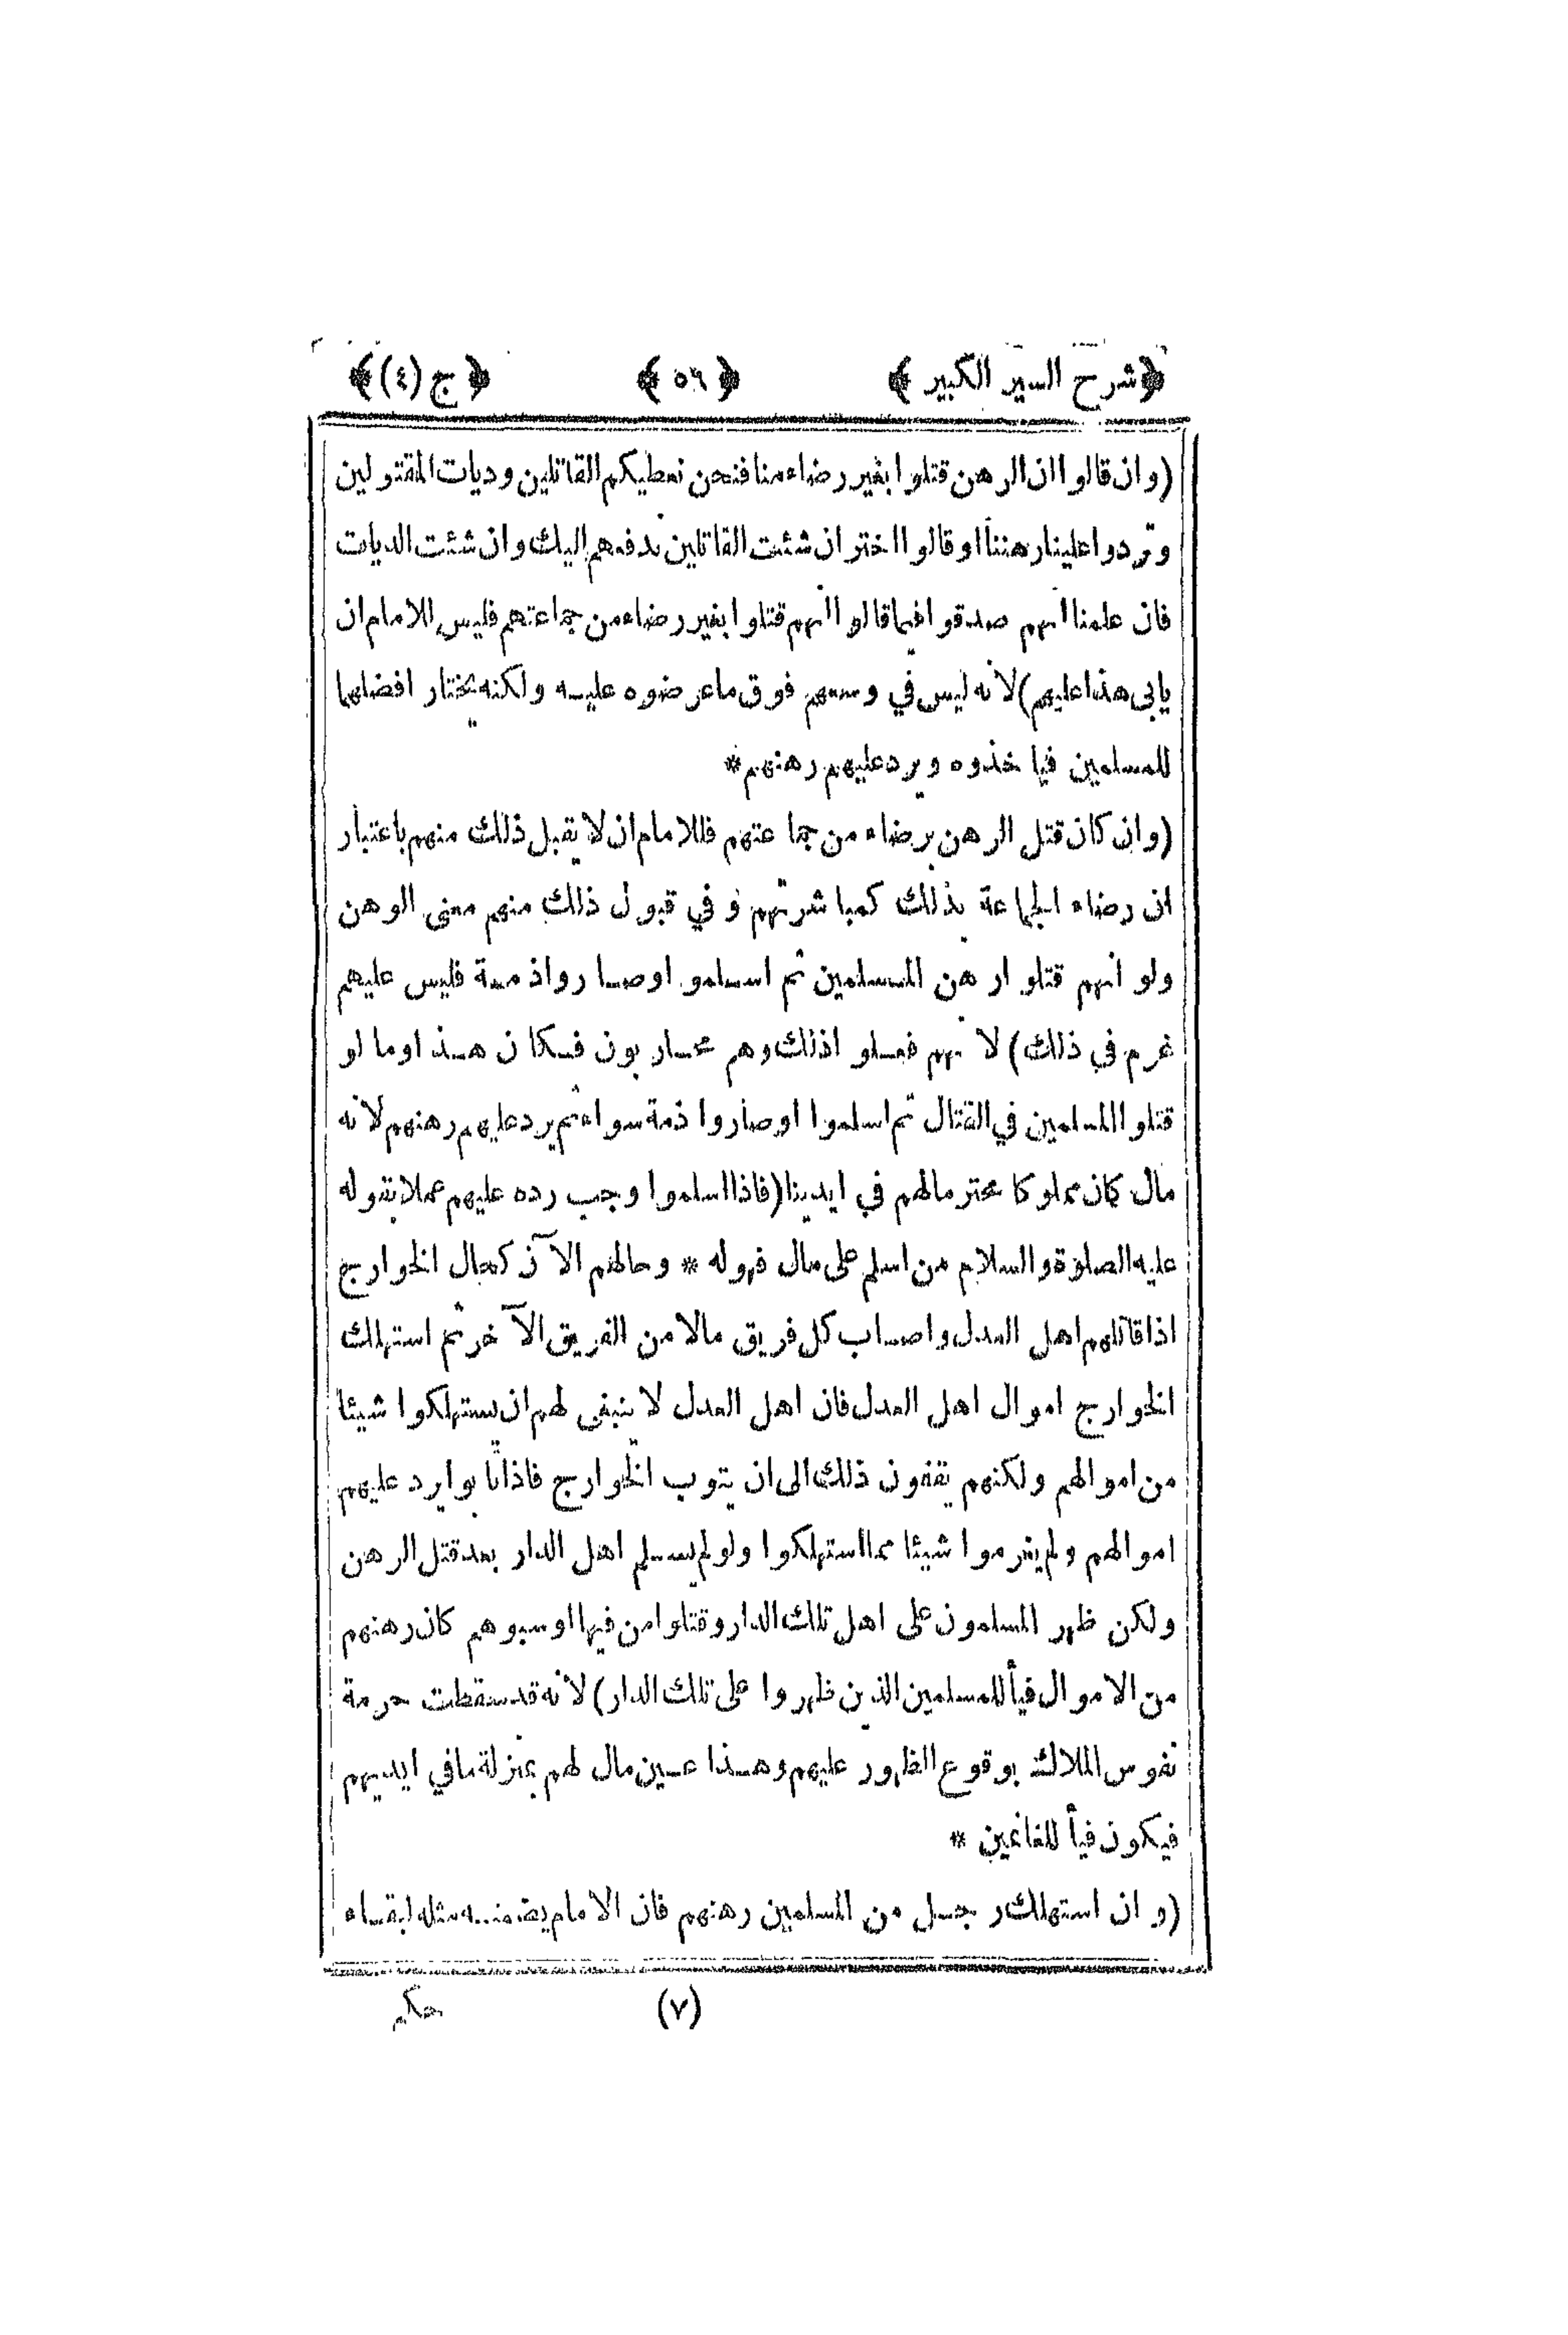 ﴿شرح السير الكبير﴾ ﴿٥٦﴾ ﴿ج (٤)﴾
(وان قالوا ان الرهن قتلوا بغير رضاء منا فنحن نعطيكم القاتلين وديات المقتولين
وتردوا علينا رهننا او قالوا اختر ان شئت القاتلين ندفعهم اليك وان شئت الديات
فان علمنا انهم صدقوا فيما قالوا انهم قتلوا بغير رضاء من جماعتهم فليس للامام ان
يابى هذا عليهم) لانه ليس في وسعهم فوق ما عرضوه عليه ولكنه يختار افضلهما
للمسلمين فيا خذوه ويرد عليهم رهنهم*
(وان كان قتل الرهن برضاء من جماعتهم فللامام ان لا يقبل ذلك منهم باعتبار
ان رضاء الجماعة بذلك كمباشرتهم وفي قبول ذلك منهم معنى الوهن
ولو انهم قتلوا رهن المسلمين ثم اسلموا اوصاروا ذمة فليس عليهم
غرم في ذلك) لانهم فعلوا ذلك وهم محاربون فكان هذا وما لو
قتلوا المسلمين في القتال ثم اسلموا اوصاروا ذمة سواء ثم يرد عليهم رهنهم لانه
مال كان مملوكا محترما لهم في ايدينا (فاذا اسلموا وجب رده عليهم عملا بقوله
عليه الصلوة والسلام من اسلم على مال فهوله * وحالهم الآن كحال الخوارج
اذا قاتلهم اهل العدل واصاب كل فريق مالا من الفريق الآخر ثم استهلك
الخوارج اموال اهل العدل فان اهل العدل لا ينبغي لهم ان يستهلكوا شيئا
من اموالهم ولكنهم يقفون ذلك الى ان يتوب الخوارج فاذا تابوا يرد عليهم
اموالهم ولم يغرموا شيئا مما استهلكوا ولو لم يسلم اهل الدار بعد قتل الرهن
ولكن ظهر المسلمون على اهل تلك الدار وقتلوا من فيها اوسبوهم كان رهنهم
من الاموال فيأ للمسلمين الذين ظهروا على تلك الدار) لانه قد سقطت حرمة
نفوس الملاك بوقوع الظهور عليهم وهذا عين مال لهم بمنزلة ما في ايديهم
فيكون فيأ للغانمين *
(وان استهلك رجل من المسلمين رهنهم فان الامام يضمنه مثله لبقاء
(٧) حكم